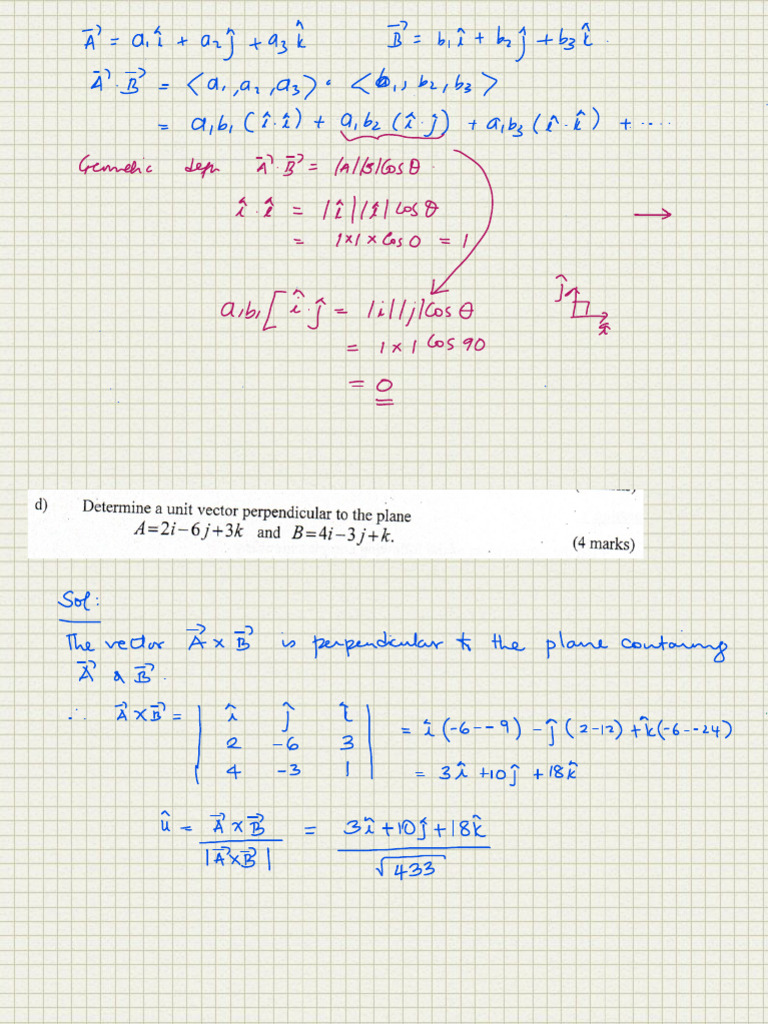 A⃗ = a₁î + a₂ĵ + a₃k̂    B⃗ = b₁î + b₂ĵ + b₃k̂.
A⃗·B⃗ = <a₁, a₂, a₃> · <b₁, b₂, b₃>
= a₁b₁(î·î) + a₁b₂(î·ĵ) + a₁b₃(î·k̂) + ....
Geometric defn A⃗·B⃗ = |A||B|cosθ.
î·î = |î||î|cosθ
= 1×1×cos0 = 1
a₁b₁[î·ĵ = |i||j|cosθ
= 1×1 cos90
= 0
ĵ
î
d) Determine a unit vector perpendicular to the plane
A=2i−6j+3k and B=4i−3j+k.
(4 marks)
Sol:
The vector A⃗ × B⃗ is perpendicular to the plane containing
A⃗ & B⃗.
∴ A⃗×B⃗ = | î ĵ k̂ | = î(-6--9) - ĵ(2-12) + k̂(-6--24)
2 -6 3
4 -3 1 | = 3î +10ĵ +18k̂
û = A⃗×B⃗ = 3î+10ĵ+18k̂
|A⃗×B⃗| √433